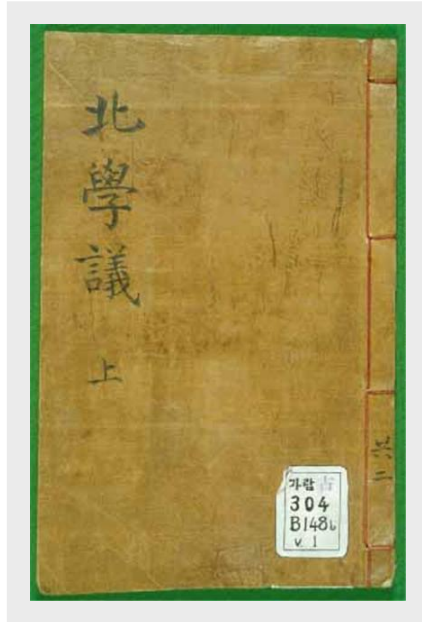 北學議 上
共二
가람 古
304
B148b
v. 1